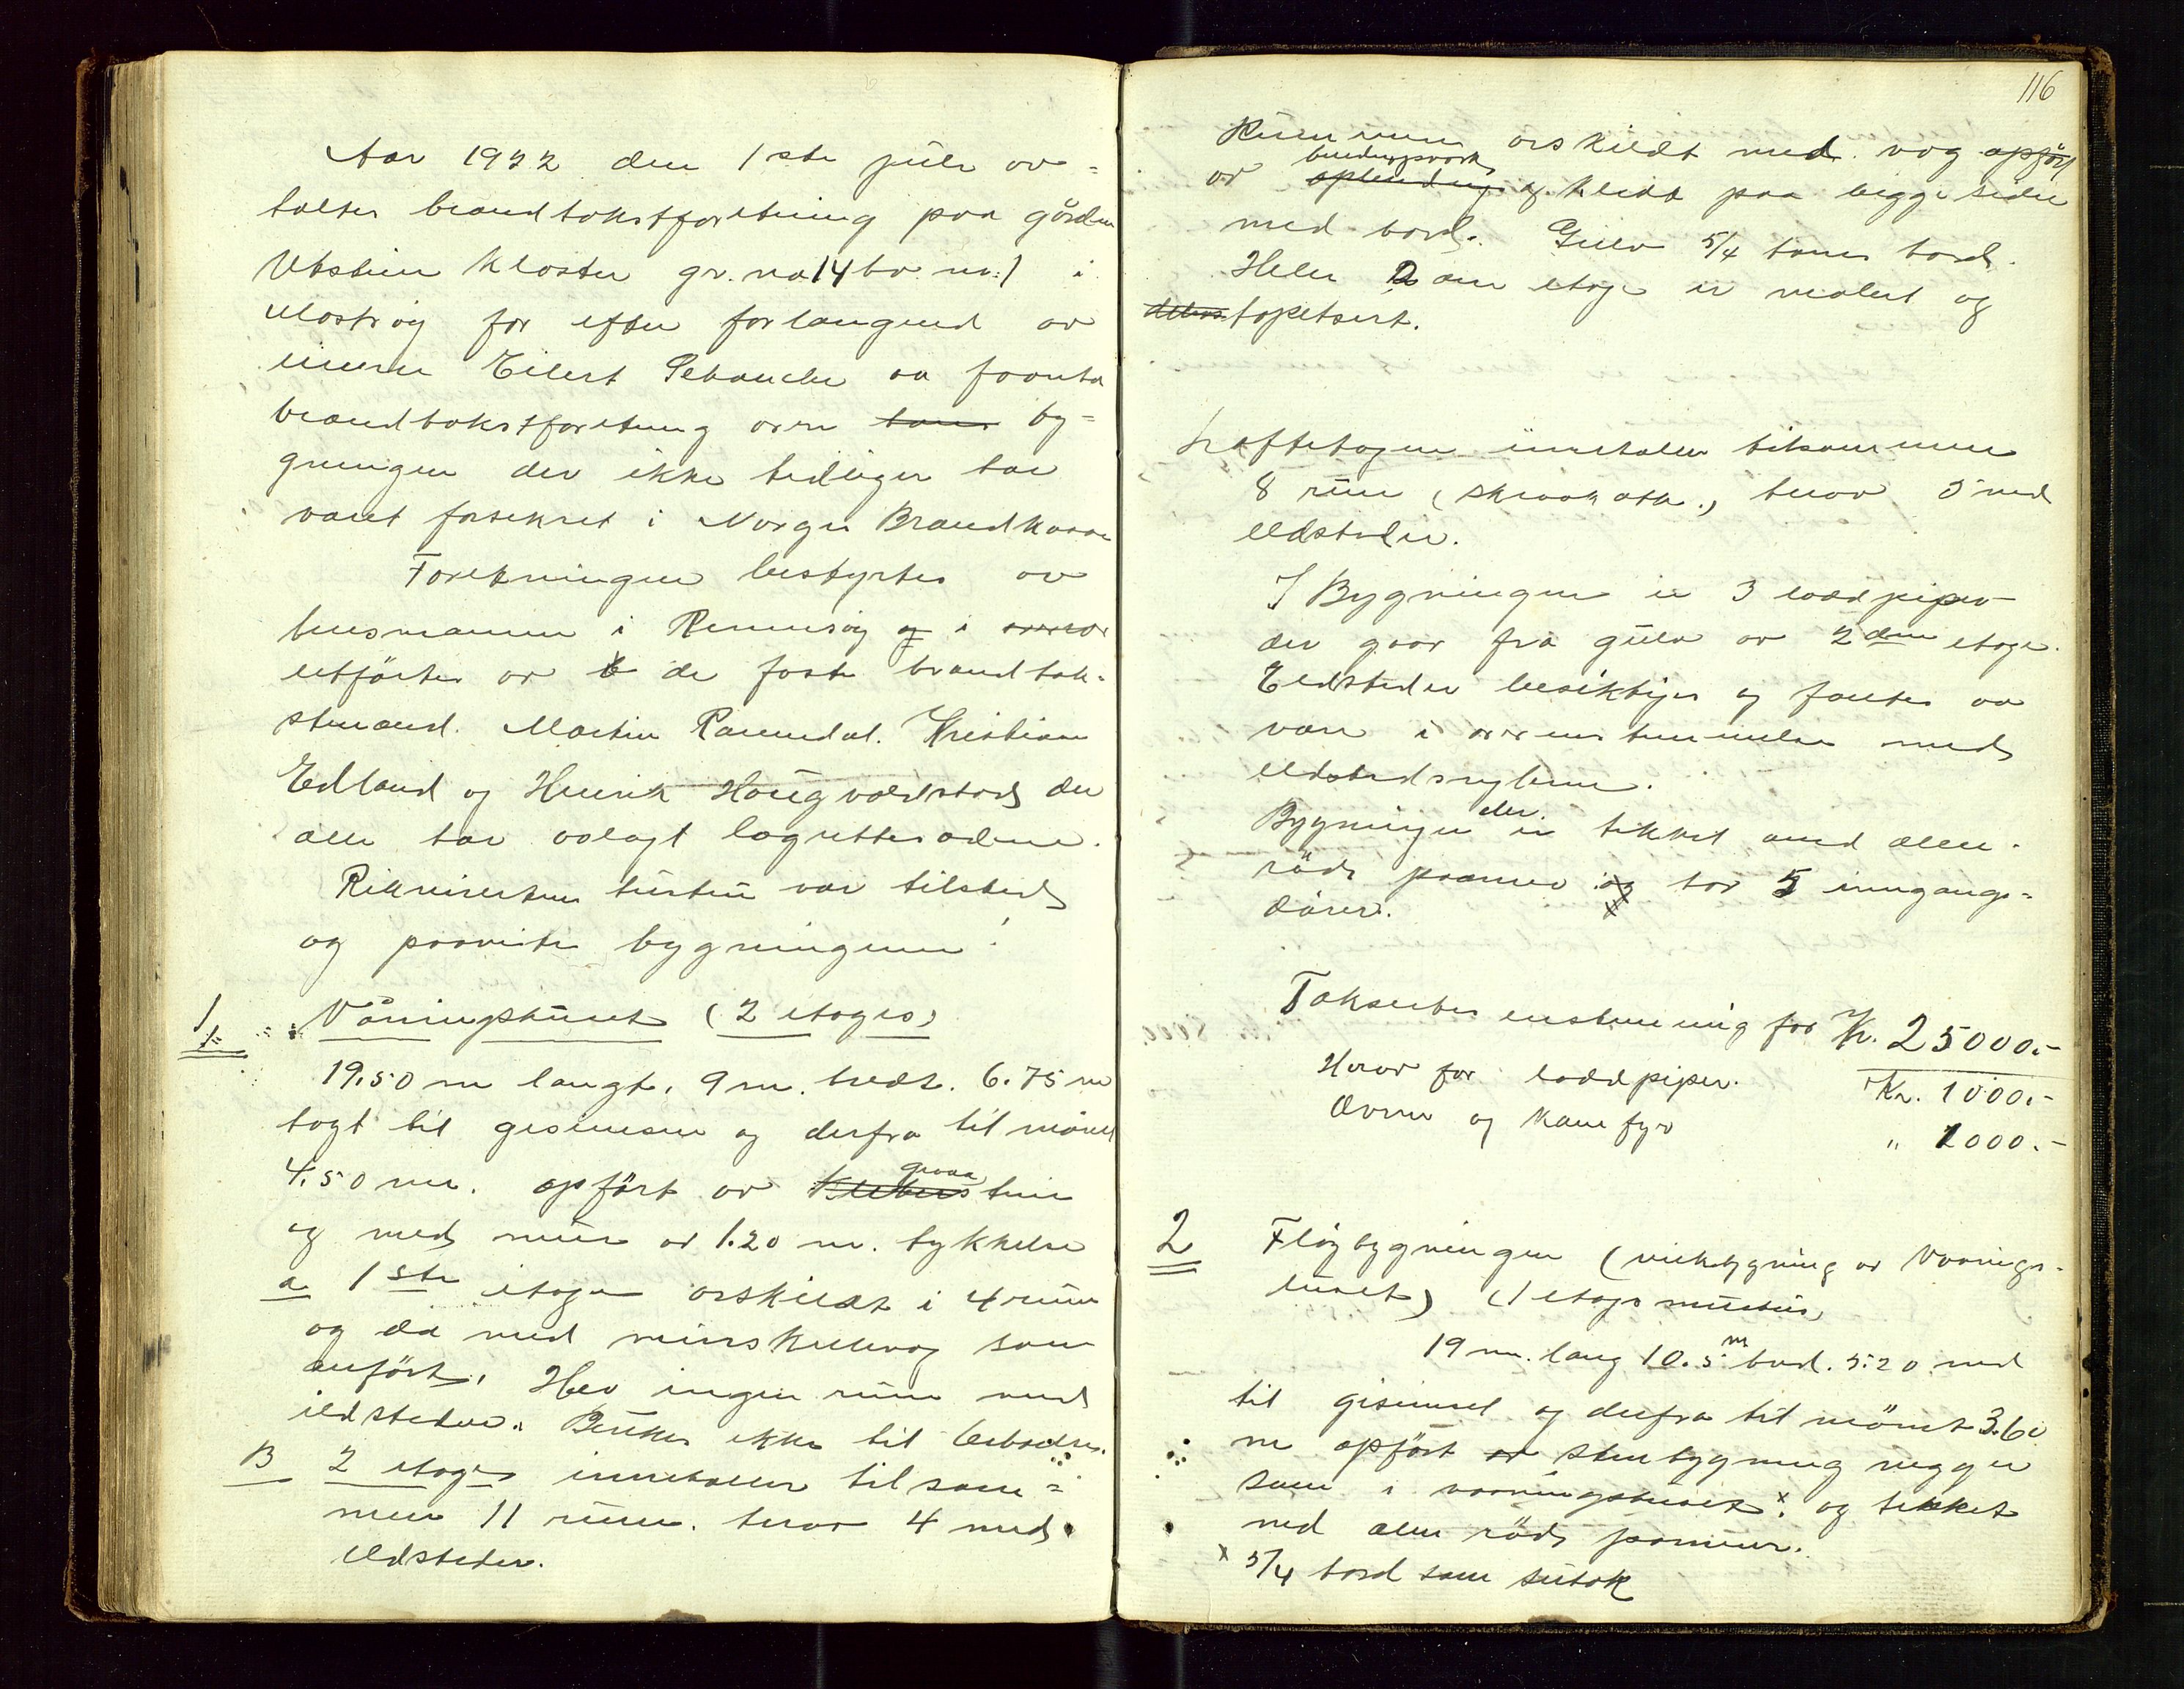 Aar 1922 den 1ste juli av=
holtes brandtakstforretning paa gården
Utstein Kloster gr. no 14 br. no: 1 i
Mosterøy for efter forlangend av
eieren Eilert Schanche aa foreta
brandtakstforetning over hans by=
gningen der ikke tidliger har
været forsekret i Norges Brandkasse
Foretningen bestyrtes av
lensmannen i Rennesøy og i
utførtes av de faste brandtak=
stmænd. Martin Rammdal. Kristian
Edland og Henrik Haugvaldstad der
alle har avlagt lagrettesedene.
Rikvirenten hustru var tilsted
og paaviste bygningenne:
1. Våningshuset (2 etages)
19.50 m langt. 9 m. bredt. 6.75 m
høgt til gesimsen og derfra til mønet
4.50 m. opført av Klebers graa stein
og med mur av 1.20 m. tykkelse
a 1ste etage avskildt i 4 rum
og da med murskillevæg som
anført. Her ingen rum med
ildsteder. Brukes ikke til beboelse.
B 2 etages inneholder tilsam=
men 11 rum. herav 4 med
Ildsteder.
116
Rummene avskildt med væg opført
av opbinding bindingsværk og kledt paa begge sider
med bord. Gulv 5/4 toms bord.
Heler 2 den etage er malet og
delvis tapetsert.
Loftetagen inneholder tilsammen
8 rum (skraatak.) herav 3 med
Ildsteder.
I Bygningen er 3 loddpiper
der gaar fra gulv av 2den etage.
Eldsteder besiktiges og fantes aa
være i overenstemmelse med
Ildstedsreglene.
Bygningen der er tekket med alm.
röde panner og har 5 inngangs=
dører.
Takseertes enstemmig for Kr. 25000.-
Herav for loddpiper. Kr. 1000.-
Ovner og komfyr " 1000.-
2 Fløybygningen (vinkelbygning av Vaanings=
huset) (1 etages murhus)
19 m. lang 10.5 m bred. 5.20 med
til gesimsel og derfra til mönet 3.60
m opfört av stenbygning vegger
som i vaaningshuset x. og tekket
med alm röde panner.
x 5/4 bord som sutak